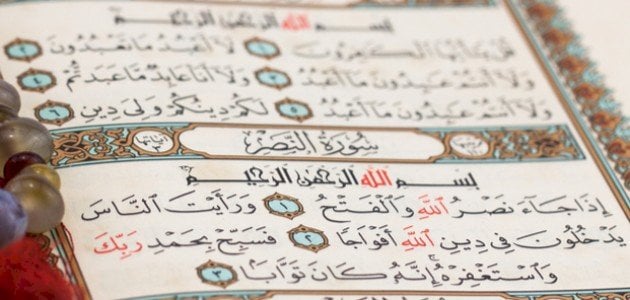 بِسْمِ اللَّهِ الرَّحْمَٰنِ الرَّحِيمِ
قُلْ يَا أَيُّهَا الْكَافِرُونَ ١ لَا أَعْبُدُ مَا تَعْبُدُونَ ٢
وَلَا أَنْتُمْ عَابِدُونَ مَا أَعْبُدُ ٣ وَلَا أَنَا عَابِدٌ مَا عَبَدْتُمْ ٤
وَلَا أَنْتُمْ عَابِدُونَ مَا أَعْبُدُ ٥ لَكُمْ دِينُكُمْ وَلِيَ دِينِ ٦
سُورَةُ النَّصْرِ
بِسْمِ اللَّهِ الرَّحْمَٰنِ الرَّحِيمِ
إِذَا جَاءَ نَصْرُ اللَّهِ وَالْفَتْحُ ١ وَرَأَيْتَ النَّاسَ
يَدْخُلُونَ فِي دِينِ اللَّهِ أَفْوَاجًا ٢ فَسَبِّحْ بِحَمْدِ رَبِّكَ
وَاسْتَغْفِرْهُ إِنَّهُ كَانَ تَوَّابًا ٣